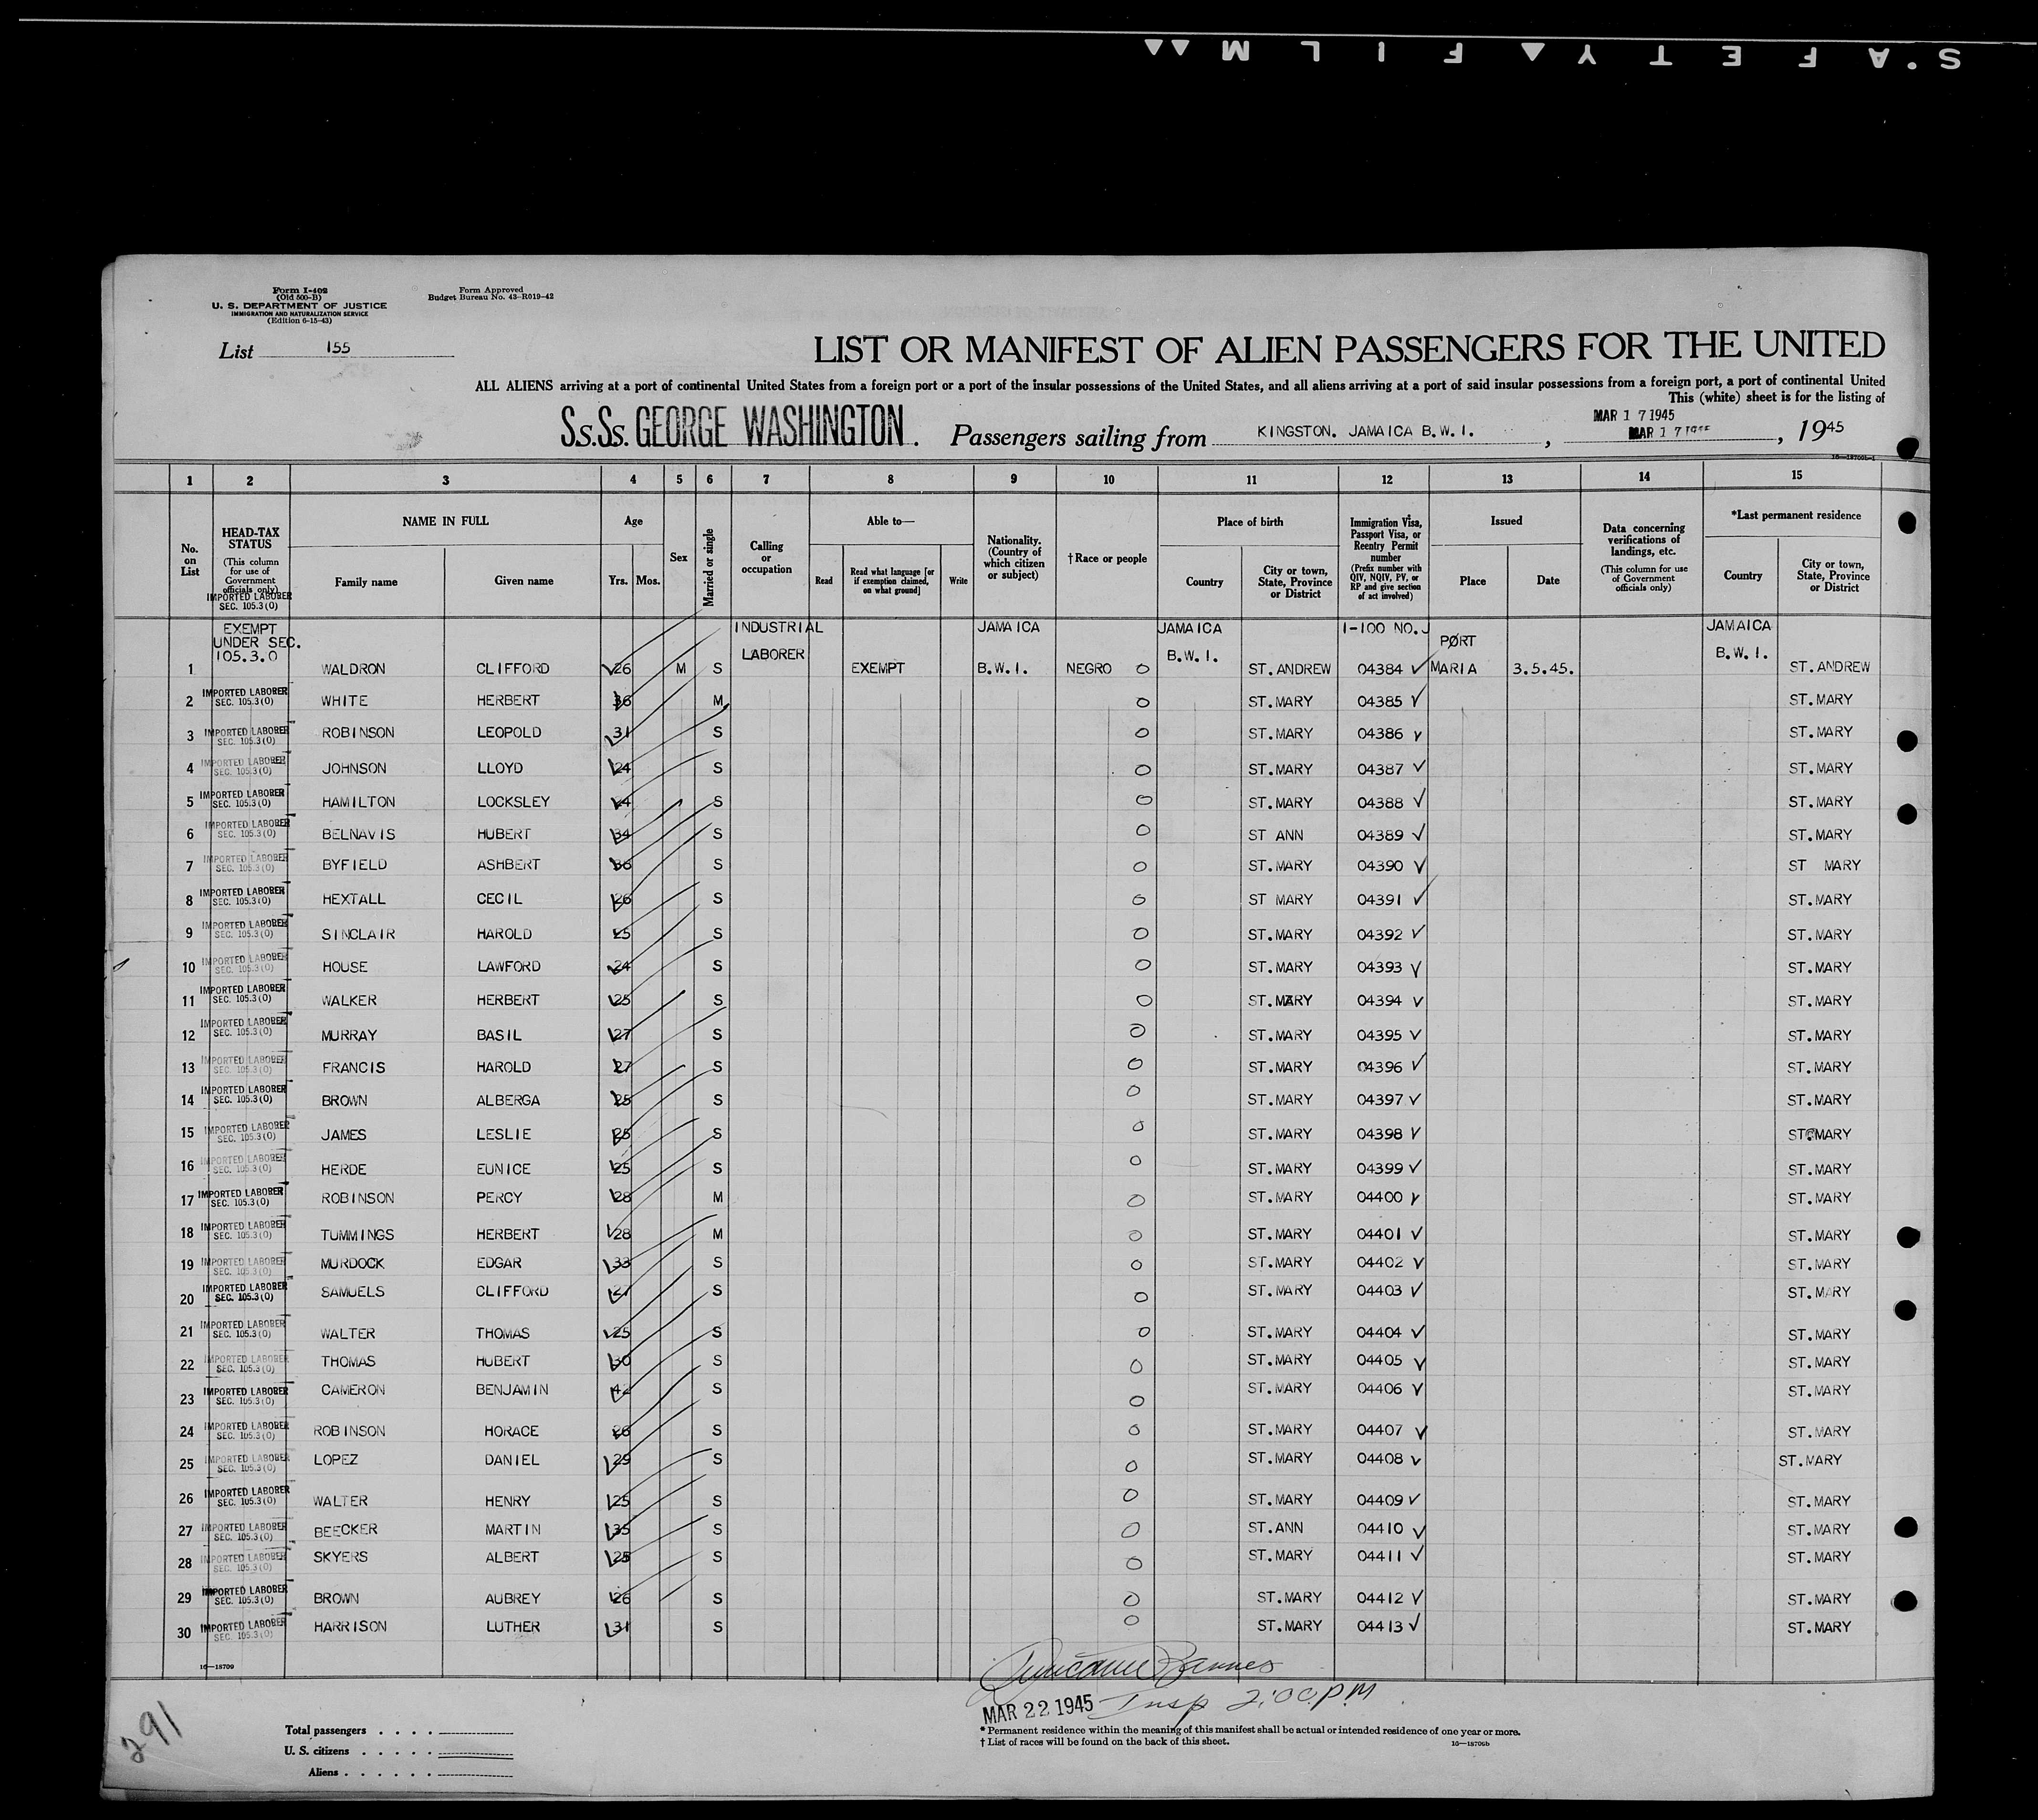 SAFETY FILM
Form I-402
(Old 500-B)
U. S. DEPARTMENT OF JUSTICE
IMMIGRATION AND NATURALIZATION SERVICE
(Edition 6-15-43)
Form Approved
Budget Bureau No. 43-R019-42
List 155
LIST OR MANIFEST OF ALIEN PASSENGERS FOR THE UNITED
ALL ALIENS arriving at a port of continental United States from a foreign port or a port of the insular possessions of the United States, and all aliens arriving at a port of said insular possessions from a foreign port, a port of continental United
This (white) sheet is for the listing of
S.S.S.S. GEORGE WASHINGTON. Passengers sailing from KINGSTON. JAMAICA B.W.I. , MAR 17 1945 , 1945
MAR 17
1 2 3 4 5 6 7 8 9 10 11 12 13 14 15
No. on List
HEAD-TAX STATUS (This column for use of Government officials only)
NAME IN FULL Family name Given name
Age Yrs. Mos.
Sex
Married or single
Calling or occupation
Able to— Read Read what language [or if exemption claimed, on what ground] Write
Nationality. (Country of which citizen or subject)
†Race or people
Place of birth Country City or town, State, Province or District
Immigration Visa, Passport Visa, or Reentry Permit number (Prefix number with QIV, NQIV, PV, or RP and give section of act involved)
Issued Place Date
Data concerning verifications of landings, etc. (This column for use of Government officials only)
*Last permanent residence Country City or town, State, Province or District
IMPORTED LABORER SEC. 105.3(0)
EXEMPT UNDER SEC. 105.3.0 INDUSTRIAL LABORER JAMAICA JAMAICA B.W.I. I-100 NO.J PORT JAMAICA B.W.I.
1 WALDRON CLIFFORD 26 M S EXEMPT B.W.I. NEGRO O ST.ANDREW 04384 MARIA 3.5.45. ST.ANDREW
2 IMPORTED LABORER SEC. 105.3(0) WHITE HERBERT 36 M O ST.MARY 04385 ST.MARY
3 IMPORTED LABORER SEC. 105.3(0) ROBINSON LEOPOLD 31 S O ST.MARY 04386 ST.MARY
4 IMPORTED LABORER SEC. 105.3(0) JOHNSON LLOYD 24 S O ST.MARY 04387 ST.MARY
5 IMPORTED LABORER SEC. 105.3(0) HAMILTON LOCKSLEY 24 S O ST.MARY 04388 ST.MARY
6 IMPORTED LABORER SEC. 105.3(0) BELNAVIS HUBERT 34 S O ST ANN 04389 ST.MARY
7 IMPORTED LABORER SEC. 105.3(0) BYFIELD ASHBERT 36 S O ST.MARY 04390 ST MARY
8 IMPORTED LABORER SEC. 105.3(0) HEXTALL CECIL 26 S O ST MARY 04391 ST.MARY
9 IMPORTED LABORER SEC. 105.3(0) SINCLAIR HAROLD 25 S O ST.MARY 04392 ST.MARY
10 IMPORTED LABORER SEC. 105.3(0) HOUSE LAWFORD 24 S O ST.MARY 04393 ST.MARY
11 IMPORTED LABORER SEC. 105.3(0) WALKER HERBERT 25 S O ST.MARY 04394 ST.MARY
12 IMPORTED LABORER SEC. 105.3(0) MURRAY BASIL 27 S O ST.MARY 04395 ST.MARY
13 IMPORTED LABORER SEC. 105.3(0) FRANCIS HAROLD 27 S O ST.MARY 04396 ST.MARY
14 IMPORTED LABORER SEC. 105.3(0) BROWN ALBERGA 25 S O ST.MARY 04397 ST.MARY
15 IMPORTED LABORER SEC. 105.3(0) JAMES LESLIE 25 S O ST.MARY 04398 ST.MARY
16 IMPORTED LABORER SEC. 105.3(0) HERDE EUNICE 25 S O ST.MARY 04399 ST.MARY
17 IMPORTED LABORER SEC. 105.3(0) ROBINSON PERCY 28 M O ST.MARY 04400 ST.MARY
18 IMPORTED LABORER SEC. 105.3(0) TUMMINGS HERBERT 28 M O ST.MARY 04401 ST.MARY
19 IMPORTED LABORER SEC. 105.3(0) MURDOCK EDGAR 33 S O ST.MARY 04402 ST.MARY
20 IMPORTED LABORER SEC. 105.3(0) SAMUELS CLIFFORD 27 S O ST.MARY 04403 ST.MARY
21 IMPORTED LABORER SEC. 105.3(0) WALTER THOMAS 25 S O ST.MARY 04404 ST.MARY
22 IMPORTED LABORER SEC. 105.3(0) THOMAS HUBERT 30 S O ST.MARY 04405 ST.MARY
23 IMPORTED LABORER SEC. 105.3(0) CAMERON BENJAMIN 42 S O ST.MARY 04406 ST.MARY
24 IMPORTED LABORER SEC. 105.3(0) ROBINSON HORACE 26 S O ST.MARY 04407 ST.MARY
25 IMPORTED LABORER SEC. 105.3(0) LOPEZ DANIEL 29 S O ST.MARY 04408 ST.MARY
26 IMPORTED LABORER SEC. 105.3(0) WALTER HENRY 25 S O ST.MARY 04409 ST.MARY
27 IMPORTED LABORER SEC. 105.3(0) BEECKER MARTIN 35 S O ST.ANN 04410 ST.MARY
28 IMPORTED LABORER SEC. 105.3(0) SKYERS ALBERT 25 S O ST.MARY 04411 ST.MARY
29 IMPORTED LABORER SEC. 105.3(0) BROWN AUBREY 26 S O ST.MARY 04412 ST.MARY
30 IMPORTED LABORER SEC. 105.3(0) HARRISON LUTHER 31 S O ST.MARY 04413 ST.MARY
16—18709
MAR 22 1945 Insp 2:00 P.M.
291
Total passengers . . . .
U. S. citizens . . . . .
Aliens . . . . . .
* Permanent residence within the meaning of this manifest shall be actual or intended residence of one year or more.
† List of races will be found on the back of this sheet.
16—18709b